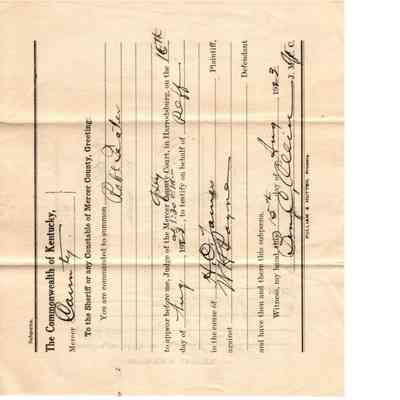 Subpœna.
The Commonwealth of Kentucky,
Mercer County
To the Sheriff or any Constable of Mercer County, Greeting:
You are commanded to summon
Robt
to appear before me, Judge of the Mercer County Court, in Harrodsburg, on the 16th
at 1:30 P.M.
day of Aug 1923, to testify on behalf of Deft
in the cause of Plaintiff,
against W H Payne Defendant
and have then and there this subpœna.
Witness, my hand, this 5th day of Aug 1923
J. M. C.
PULLIAM & HUTTON, PRINTERS